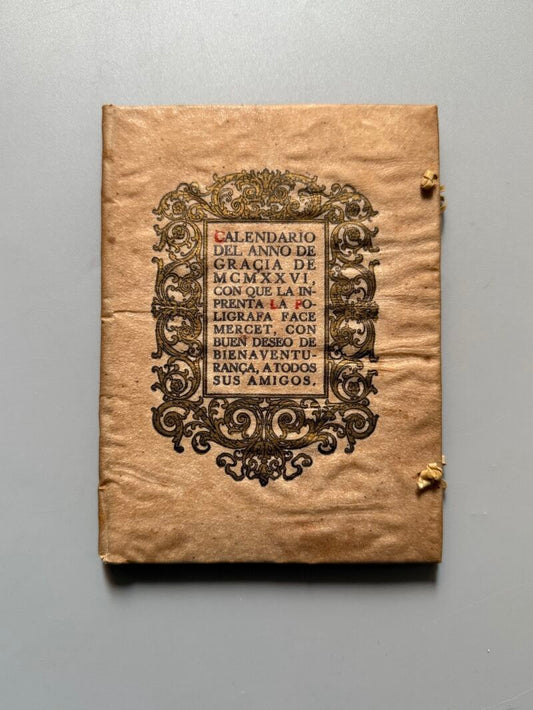 CALENDARIO
DEL ANNO DE
GRAÇIA DE
MCMXXVI,
CON QUE LA IN-
PRENTA LA PO-
LIGRAFA FACE
MERCET, CON
BUEN DESEO DE
BIENAVENTU-
RANÇA, A TODOS
SUS AMIGOS.